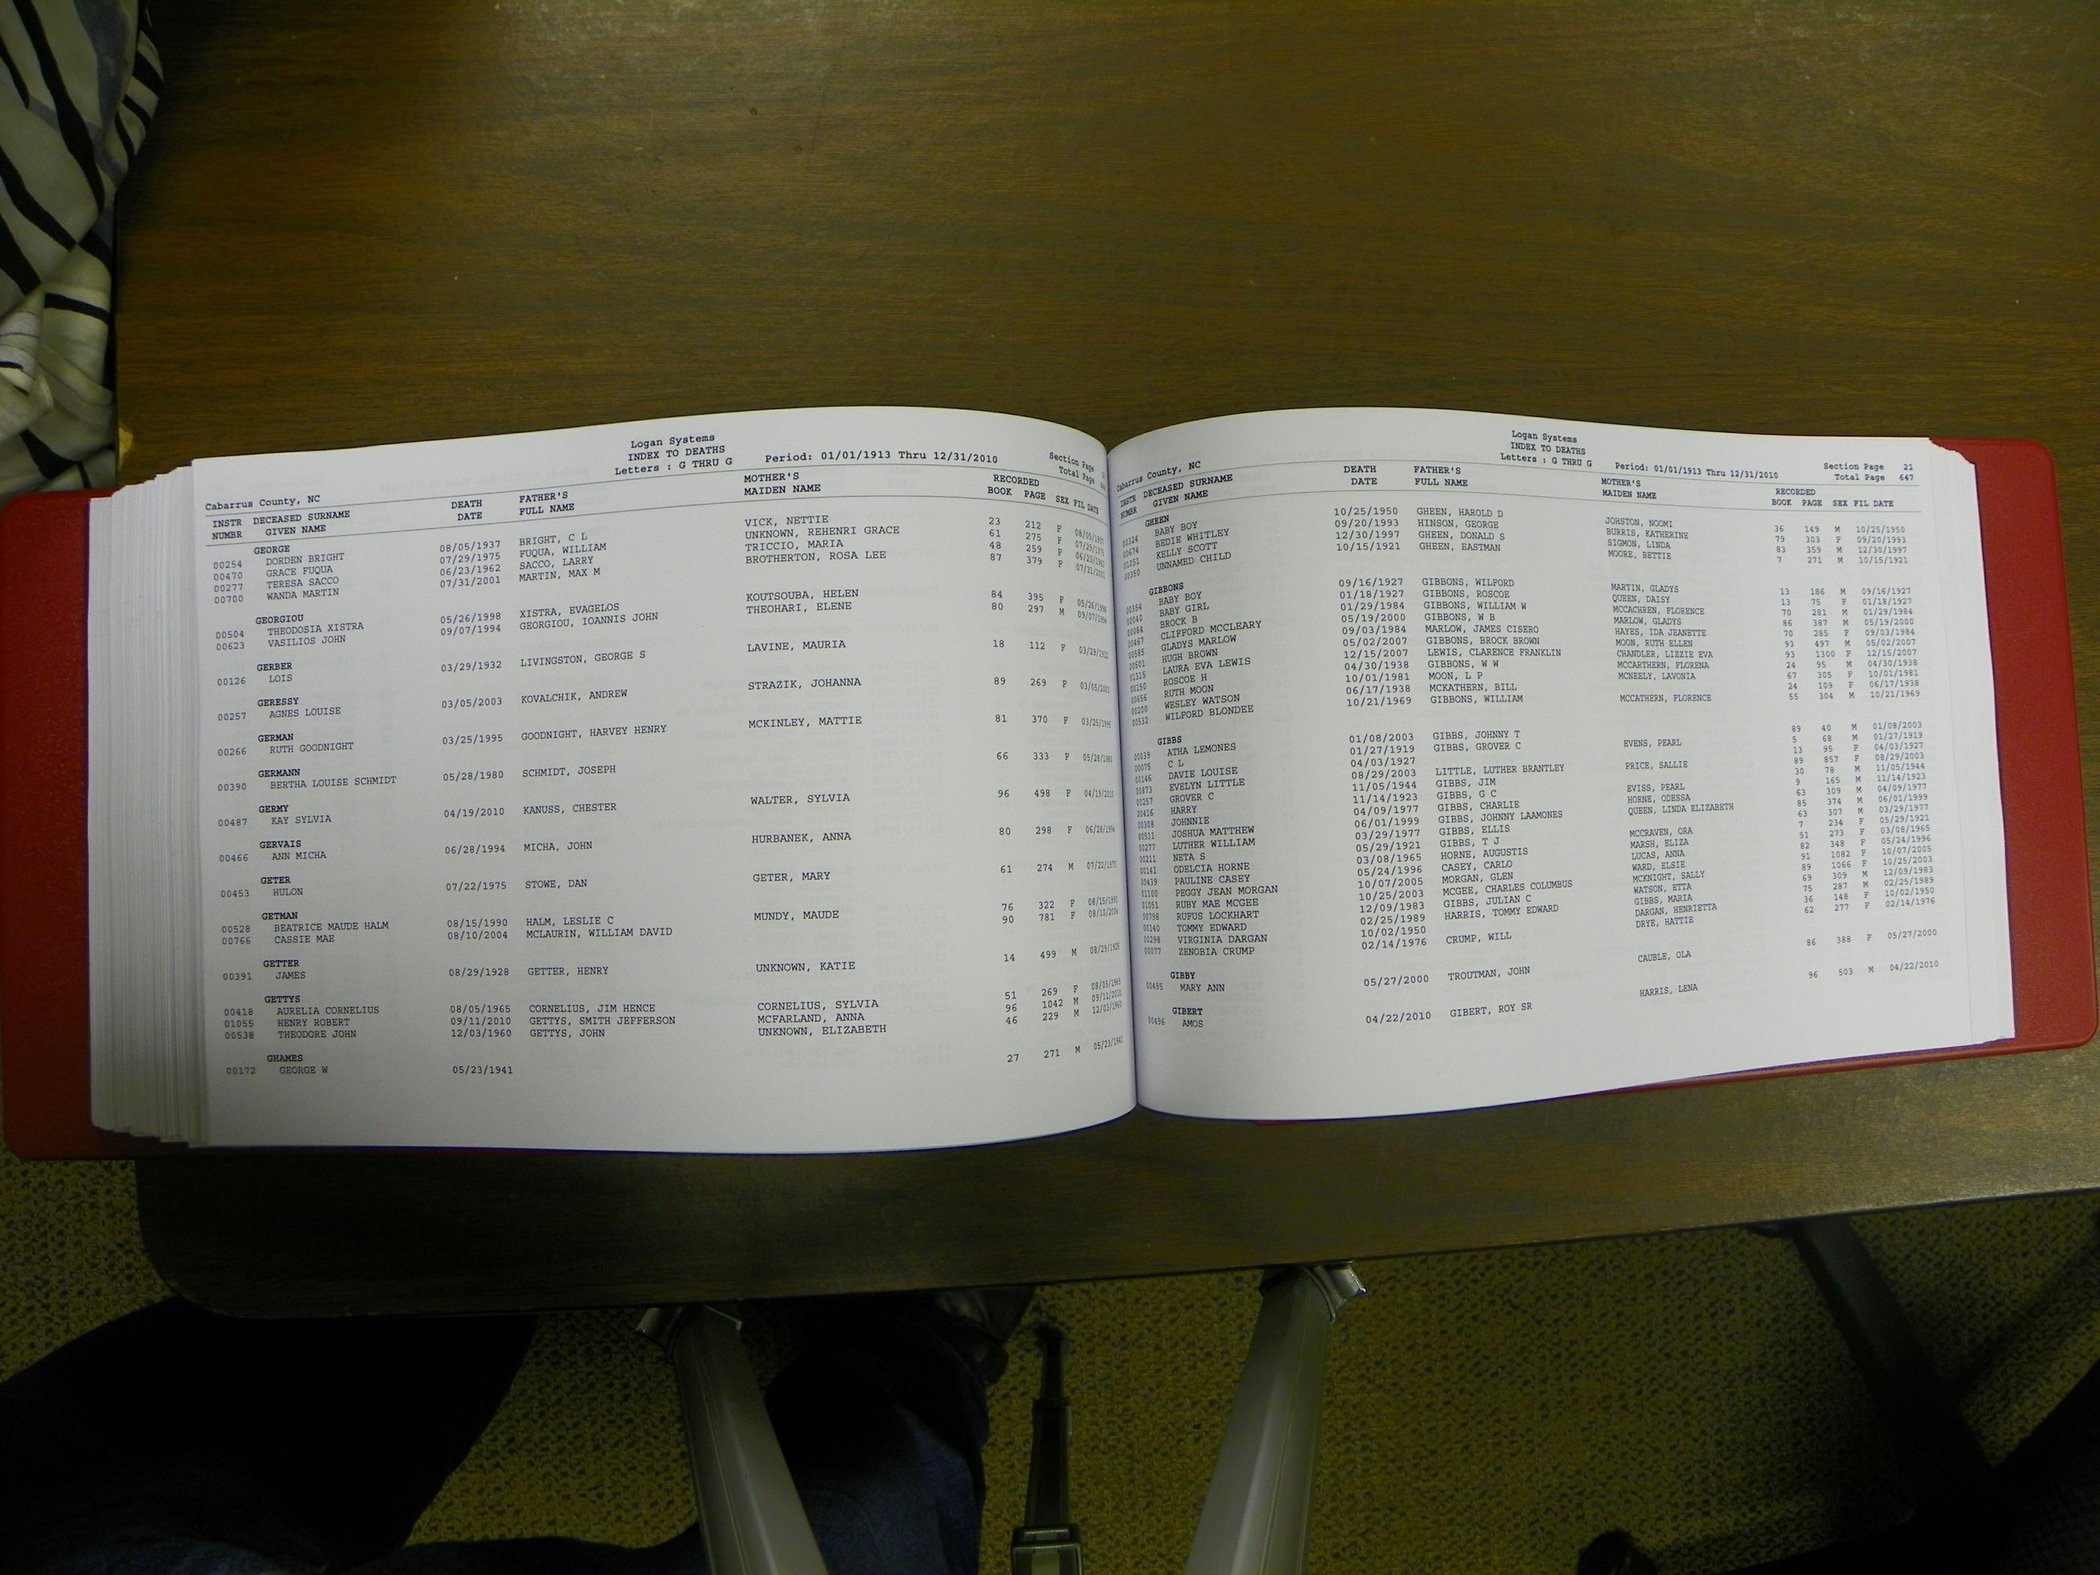 Logan Systems
INDEX TO DEATHS
Letters : G THRU G Period: 01/01/1913 Thru 12/31/2010
Section Page
Total Page
Cabarrus County, NC
INSTR DECEASED SURNAME DEATH FATHER'S MOTHER'S RECORDED
NUMBR GIVEN NAME DATE FULL NAME MAIDEN NAME BOOK PAGE SEX FIL DATE
GEORGE
00254 DORDEN BRIGHT 08/05/1937 BRIGHT, C L VICK, NETTIE 23 212 F 08/05/1937
00470 GRACE FUQUA 07/29/1975 FUQUA, WILLIAM UNKNOWN, REHENRI GRACE 61 275 F 07/29/1975
00277 TERESA SACCO 06/23/1962 SACCO, LARRY TRICCIO, MARIA 48 259 F 06/23/1962
00700 WANDA MARTIN 07/31/2001 MARTIN, MAX M BROTHERTON, ROSA LEE 87 379 F 07/31/2001
GEORGIOU
00504 THEODOSIA XISTRA 05/26/1998 XISTRA, EVAGELOS KOUTSOUBA, HELEN 84 395 F 05/26/1998
00623 VASILIOS JOHN 09/07/1994 GEORGIOU, IOANNIS JOHN THEOHARI, ELENE 80 297 M 09/07/1994
GERBER
00126 LOIS 03/29/1932 LIVINGSTON, GEORGE S LAVINE, MAURIA 18 112 F 03/29/1932
GERESSY
00257 AGNES LOUISE 03/05/2003 KOVALCHIK, ANDREW STRAZIK, JOHANNA 89 269 F 03/05/2003
GERMAN
00266 RUTH GOODNIGHT 03/25/1995 GOODNIGHT, HARVEY HENRY MCKINLEY, MATTIE 81 370 F 03/25/1995
GERMANN
00390 BERTHA LOUISE SCHMIDT 05/28/1980 SCHMIDT, JOSEPH 66 333 F 05/28/1980
GERMY
00487 KAY SYLVIA 04/19/2010 KANUSS, CHESTER WALTER, SYLVIA 96 498 F 04/19/2010
GERVAIS
00466 ANN MICHA 06/28/1994 MICHA, JOHN HURBANEK, ANNA 80 298 F 06/28/1994
GETER
00453 HULON 07/22/1975 STOWE, DAN GETER, MARY 61 274 M 07/22/1975
GETMAN
00528 BEATRICE MAUDE HALM 08/15/1990 HALM, LESLIE C MUNDY, MAUDE 76 322 F 08/15/1990
00766 CASSIE MAE 08/10/2004 MCLAURIN, WILLIAM DAVID 90 781 F 08/10/2004
GETTER
00391 JAMES 08/29/1928 GETTER, HENRY UNKNOWN, KATIE 14 499 M 08/29/1928
GETTYS
00418 AURELIA CORNELIUS 08/05/1965 CORNELIUS, JIM HENCE CORNELIUS, SYLVIA 51 269 F 08/05/1965
01055 HENRY ROBERT 09/11/2010 GETTYS, SMITH JEFFERSON MCFARLAND, ANNA 96 1042 M 09/11/2010
00538 THEODORE JOHN 12/03/1960 GETTYS, JOHN UNKNOWN, ELIZABETH 46 229 M 12/03/1960
GHAMES
00172 GEORGE W 05/23/1941 27 271 M 05/23/1941
Logan Systems
INDEX TO DEATHS
Letters : G THRU G Period: 01/01/1913 Thru 12/31/2010
Section Page 21
Total Page 647
Cabarrus County, NC
INSTR DECEASED SURNAME DEATH FATHER'S MOTHER'S RECORDED
NUMBR GIVEN NAME DATE FULL NAME MAIDEN NAME BOOK PAGE SEX FIL DATE
GHEEN
00324 BABY BOY 10/25/1950 GHEEN, HAROLD D JOHSTON, NOOMI 36 149 M 10/25/1950
00674 BEDIE WHITLEY 09/20/1993 HINSON, GEORGE BURRIS, KATHERINE 79 303 F 09/20/1993
01051 KELLY SCOTT 12/30/1997 GHEEN, DONALD S SIGMON, LINDA 83 359 M 12/30/1997
00350 UNNAMED CHILD 10/15/1921 GHEEN, EASTMAN MOORE, BETTIE 7 271 M 10/15/1921
GIBBONS
00354 BABY BOY 09/16/1927 GIBBONS, WILFORD MARTIN, GLADYS 13 186 M 09/16/1927
00040 BABY GIRL 01/18/1927 GIBBONS, ROSCOE QUEEN, DAISY 13 75 F 01/18/1927
00084 BROCK B 01/29/1984 GIBBONS, WILLIAM W MCCACHREN, FLORENCE 70 281 M 01/29/1984
00467 CLIFFORD MCCLEARY 05/19/2000 GIBBONS, W B MARLOW, GLADYS 86 387 M 05/19/2000
00585 GLADYS MARLOW 09/03/1984 MARLOW, JAMES CISERO HAYES, IDA JEANETTE 70 285 F 09/03/1984
00501 HUGH BROWN 05/02/2007 GIBBONS, BROCK BROWN MOON, RUTH ELLEN 93 497 M 05/02/2007
01315 LAURA EVA LEWIS 12/15/2007 LEWIS, CLARENCE FRANKLIN CHANDLER, LIZZIE EVA 93 1300 F 12/15/2007
00150 ROSCOE H 04/30/1938 GIBBONS, W W MCCARTHERN, FLORENA 24 95 M 04/30/1938
00656 RUTH MOON 10/01/1981 MOON, L P MCNEELY, LAVONIA 67 305 F 10/01/1981
00200 WESLEY WATSON 06/17/1938 MCKATHERN, BILL 24 109 F 06/17/1938
00532 WILFORD BLONDEE 10/21/1969 GIBBONS, WILLIAM MCCATHERN, FLORENCE 55 304 M 10/21/1969
GIBBS
00039 ATHA LEMONES 01/08/2003 GIBBS, JOHNNY T 89 40 M 01/08/2003
00075 C L 01/27/1919 GIBBS, GROVER C EVENS, PEARL 5 68 M 01/27/1919
00146 DAVIE LOUISE 04/03/1927 13 95 F 04/03/1927
00873 EVELYN LITTLE 08/29/2003 LITTLE, LUTHER BRANTLEY PRICE, SALLIE 89 857 F 08/29/2003
00257 GROVER C 11/05/1944 GIBBS, JIM 30 78 M 11/05/1944
00416 HARRY 11/14/1923 GIBBS, G C EVISS, PEARL 9 165 M 11/14/1923
00308 JOHNNIE 04/09/1977 GIBBS, CHARLIE HORNE, ODESSA 63 309 M 04/09/1977
00511 JOSHUA MATTHEW 06/01/1999 GIBBS, JOHNNY LAAMONES QUEEN, LINDA ELIZABETH 85 374 M 06/01/1999
00277 LUTHER WILLIAM 03/29/1977 GIBBS, ELLIS 63 307 M 03/29/1977
00211 NETA S 05/29/1921 GIBBS, T J MCCRAVEN, ORA 7 234 F 05/29/1921
00141 ODELCIA HORNE 03/08/1965 HORNE, AUGUSTIS MARSH, ELIZA 51 273 F 03/08/1965
00439 PAULINE CASEY 05/24/1996 CASEY, CARLO LUCAS, ANNA 82 348 F 05/24/1996
01100 PEGGY JEAN MORGAN 10/07/2005 MORGAN, GLEN WARD, ELSIE 91 1082 F 10/07/2005
01051 RUBY MAE MCGEE 10/25/2003 MCGEE, CHARLES COLUMBUS MCKNIGHT, SALLY 89 1066 F 10/25/2003
00798 RUFUS LOCKHART 12/09/1983 GIBBS, JULIAN C WATSON, ETTA 69 309 M 12/09/1983
00140 TOMMY EDWARD 02/25/1989 HARRIS, TOMMY EDWARD GIBBS, MARIA 75 287 M 02/25/1989
00298 VIRGINIA DARGAN 10/02/1950 DARGAN, HENRIETTA 36 148 F 10/02/1950
00077 ZENOBIA CRUMP 02/14/1976 CRUMP, WILL DRYE, HATTIE 62 277 F 02/14/1976
GIBBY
00495 MARY ANN 05/27/2000 TROUTMAN, JOHN CAUBLE, OLA 86 388 F 05/27/2000
GIBERT
00496 AMOS 04/22/2010 GIBERT, ROY SR HARRIS, LENA 96 503 M 04/22/2010